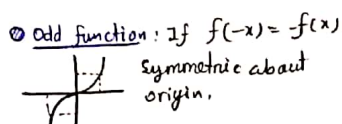 Odd function : If f(-x) = -f(x)
Symmetric about
origin.